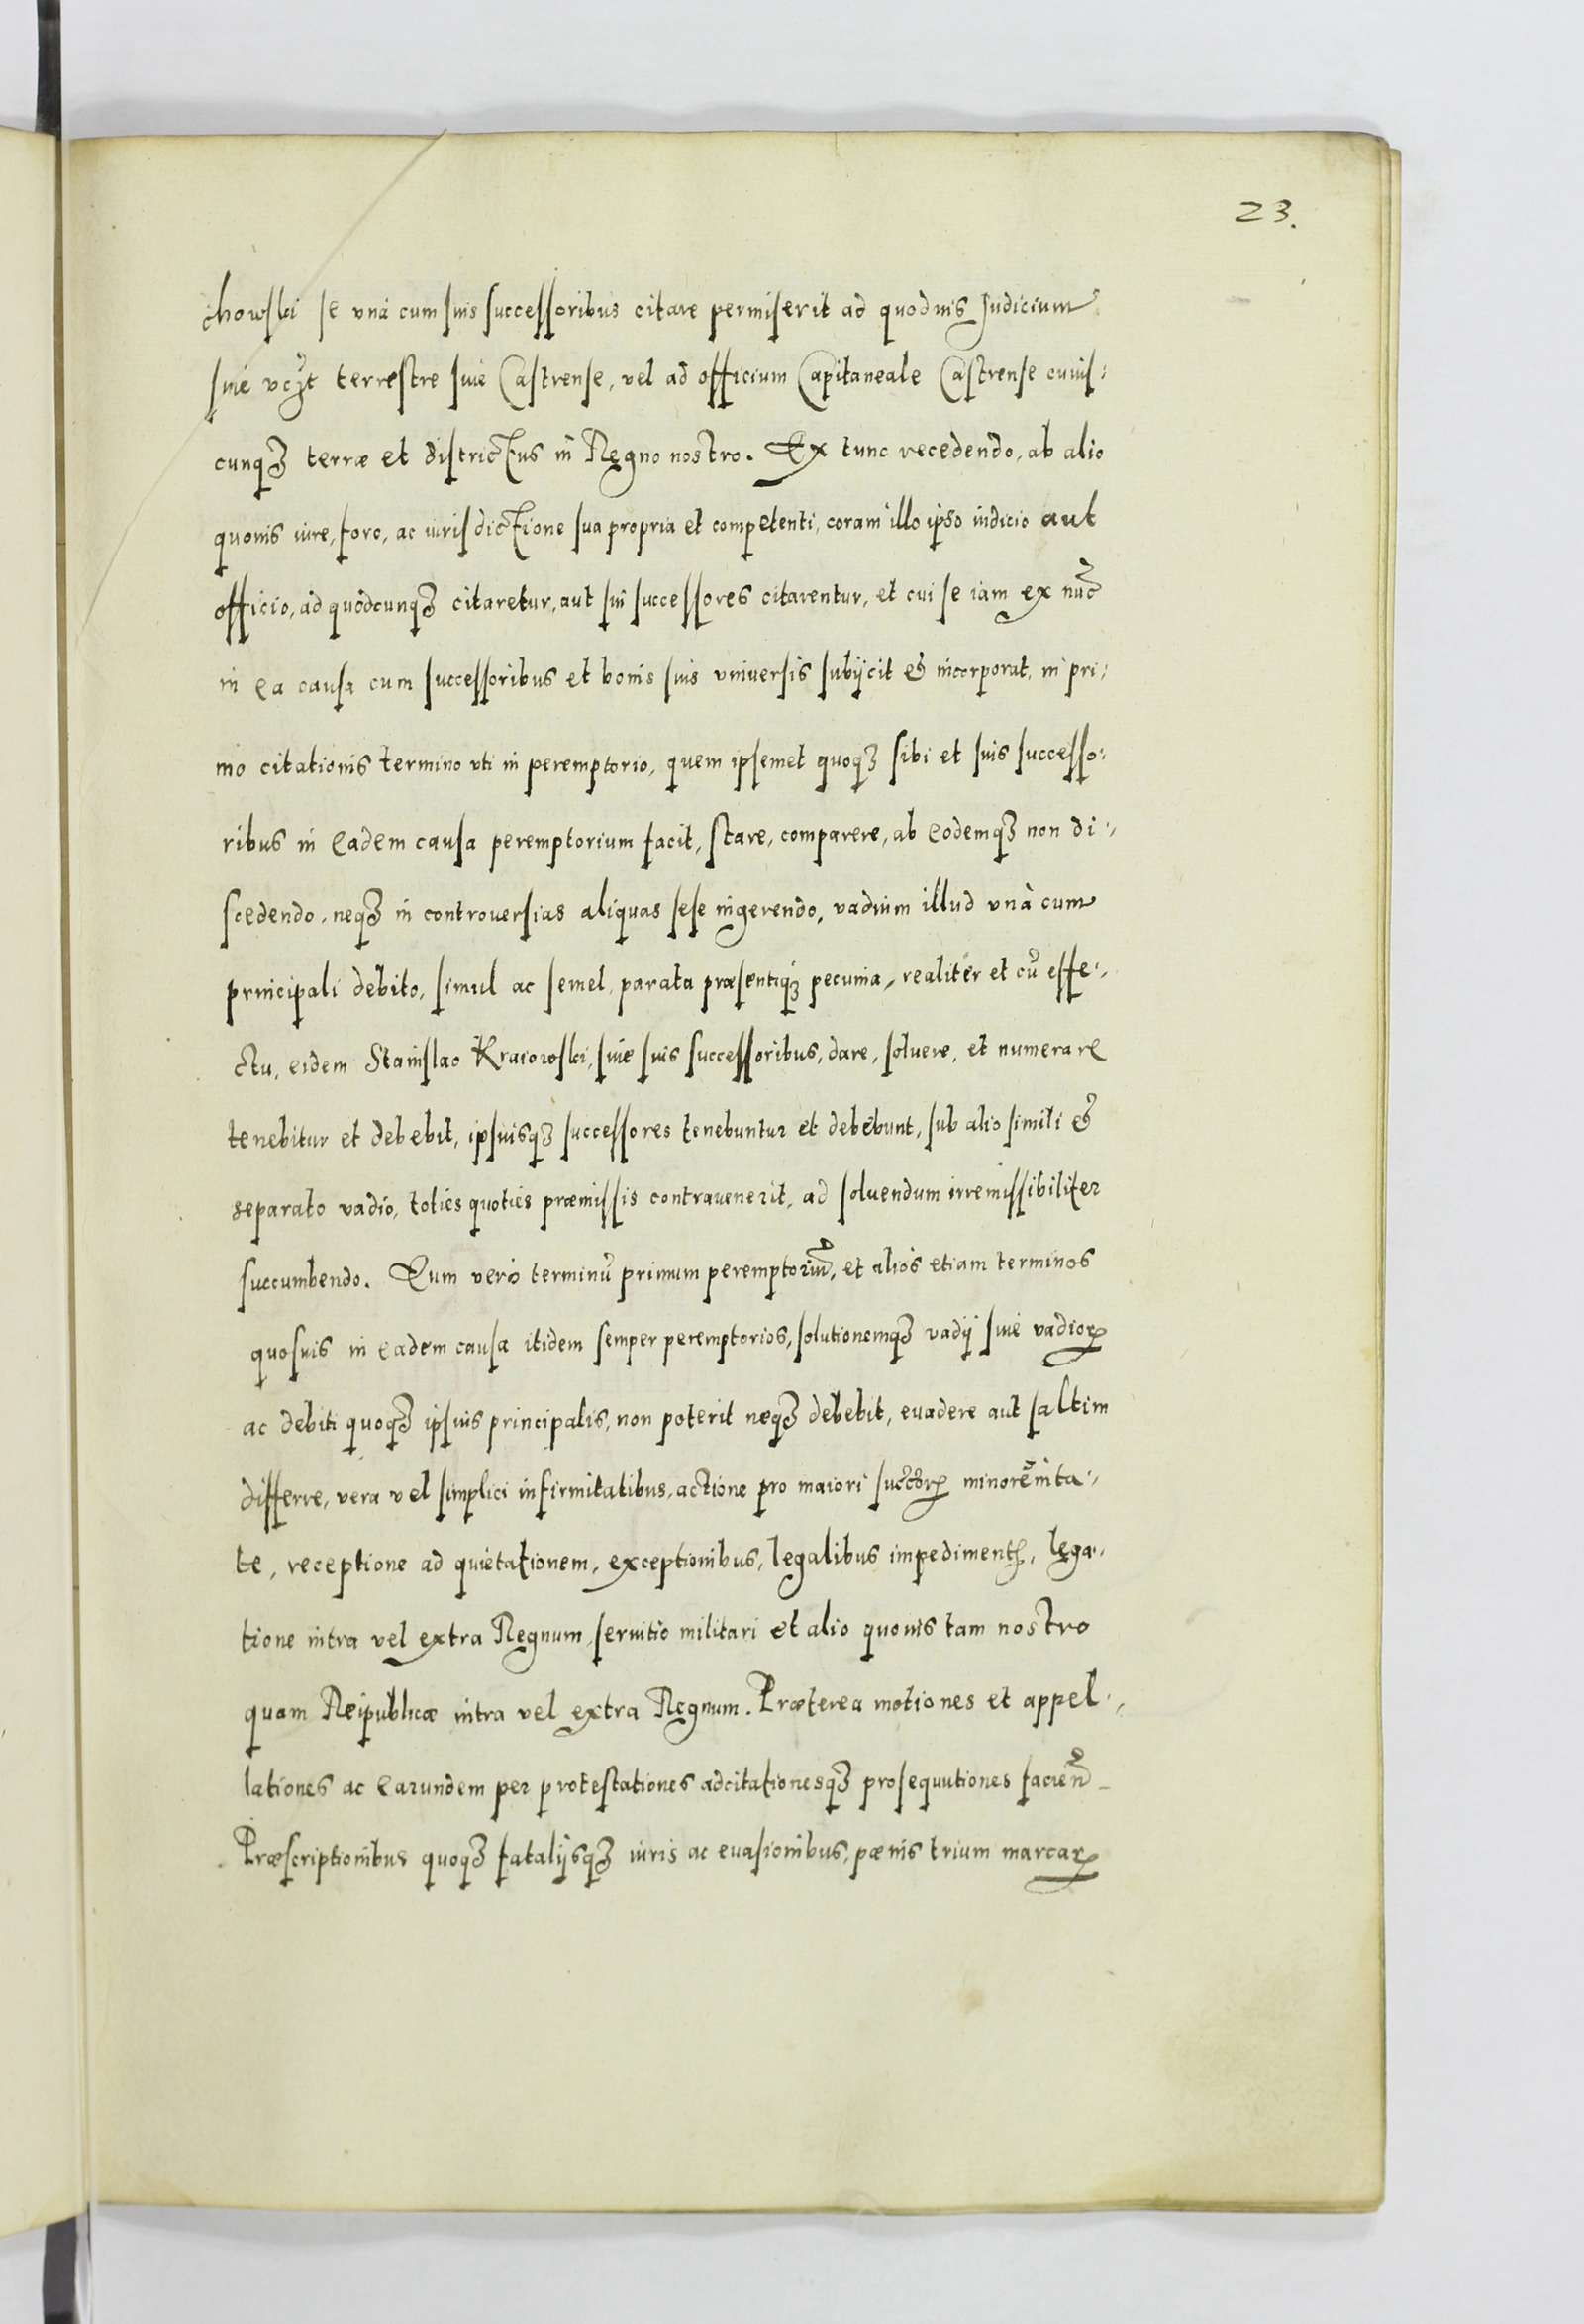 23.
chowski se unà cum suis successoribus citare permiserit ad quodvis Judicium
sive terrestre sive Castrense, vel ad officium Capitaneale Castrense cuius:
cunqꝫ terræ et districtus in Regno nostro. Ex tunc recedendo, ab alio
quovis iure, foro, ac iurisdictione sua propria et competenti, coram illo ipso iudicio aut
officio, ad quodcunqꝫ citaretur, aut sui successores citarentur, et cui se iam ex nūc
in ea causa cum successoribus et bonis suis universis subijcit & incorporat, in pri:
mo citationis termino uti in peremptorio, quem ipsemet quoqꝫ sibi et suis successo:
ribus in eadem causa peremptorium facit, stare, comparere, ab eodemqꝫ non di:
scedendo, neqꝫ in controversias aliquas sese ingerendo, vadium illud unà cum
principali debito, simul ac semel, parata præsentiqꝫ pecunia, realiter et cū effe:
ctu, eidem Stanislao Kraiowski, sive suis successoribus, dare, solvere, et numerare
tenebitur et debebit, ipsiusqꝫ successores tenebuntur et debebunt, sub alio simili &
separato vadio, toties quoties præmissis contravenerit, ad solvendum irremissibiliter
succumbendo. Eum verò terminū primum peremptoriū, et alios etiam terminos
quosvis in eadem causa itidem semper peremptorios, solutionemqꝫ vadij sive vadioꝝ
ac debiti quoqꝫ ipsius principalis, non poterit neqꝫ debebit, evadere aut saltim
differre, vera vel simplici infirmitatibus, actione pro maiori succōꝝ minorēnita:
te, receptione ad quietationem, exceptionibus, legalibus impediment, lega:
tione intra vel extra Regnum, servitio militari et alio quovis tam nostro
quam Reipublicæ intra vel extra Regnum. Præterea motiones et appel:
lationes ac earundem per protestationes adcitationesqꝫ prosequutiones faciēn
Præscriptionibus quoqꝫ fatalijsqꝫ iuris ac evasionibus, pænis trium marcaꝝ